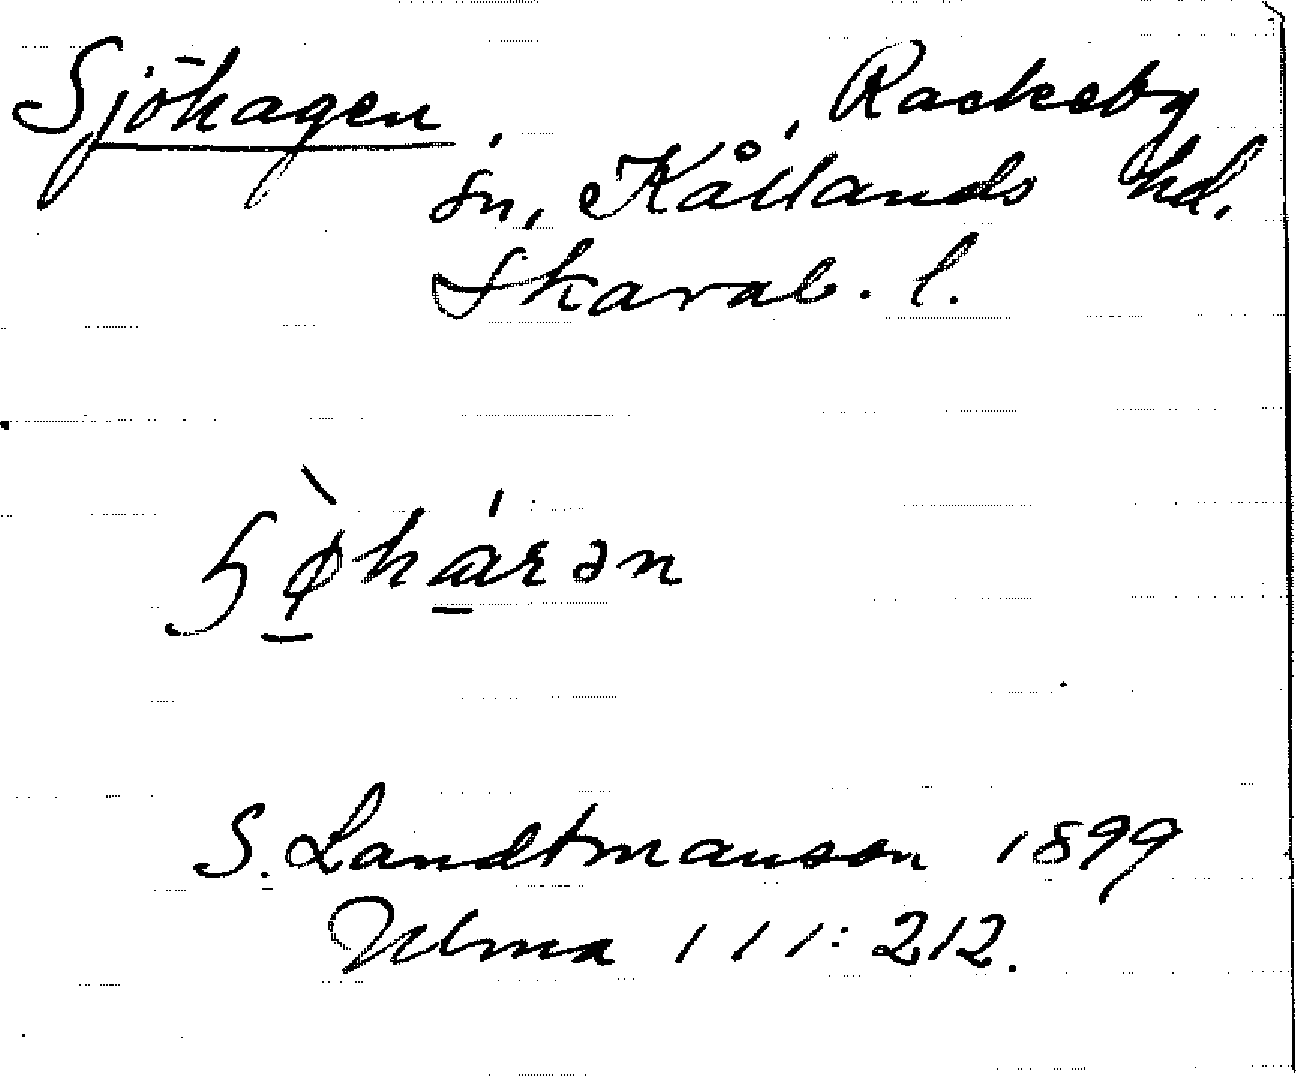 Sjöhagen, Rackeby
sn, Kållands hd.
Skarab. l.
S. Landtmanson 1899
Ulma 111:212.